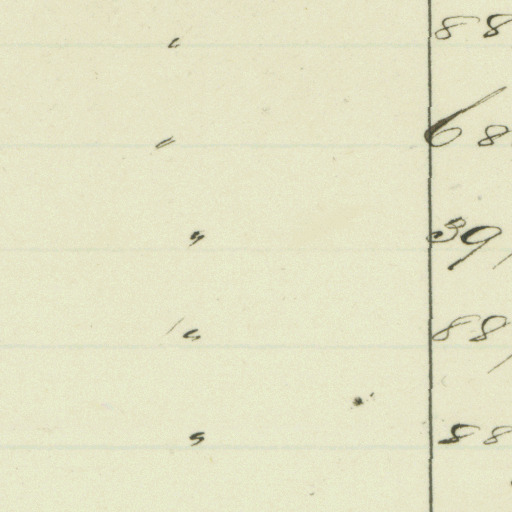 " 88
" 68
" 39
" 88
" 88